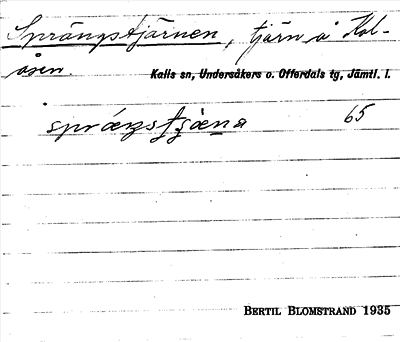 Sprängstjärnen, tjärn å Kol-
åsen. Kalls sn, Undersåkers o. Offerdals tg, Jämtl. l.
65
BERTIL BLOMSTRAND 1935